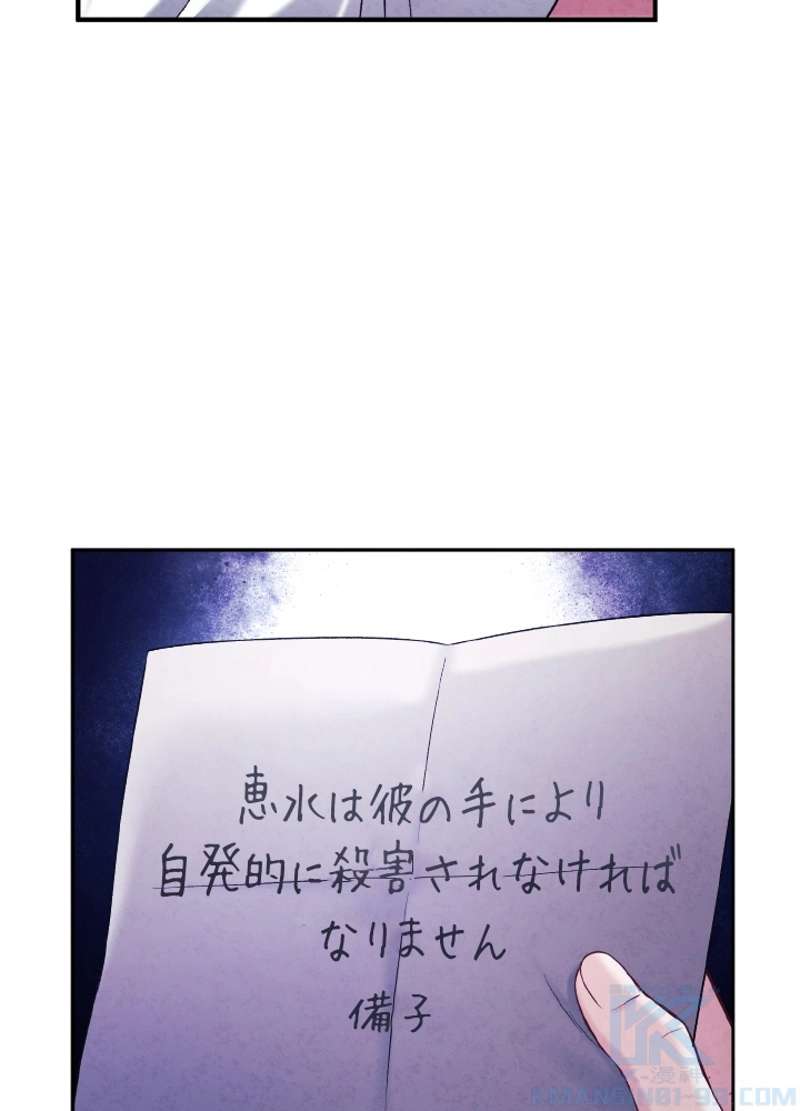 恵水は彼の手により
自発的に殺害されなければ
なりません
備子
漫神
KMANGA01-93.COM